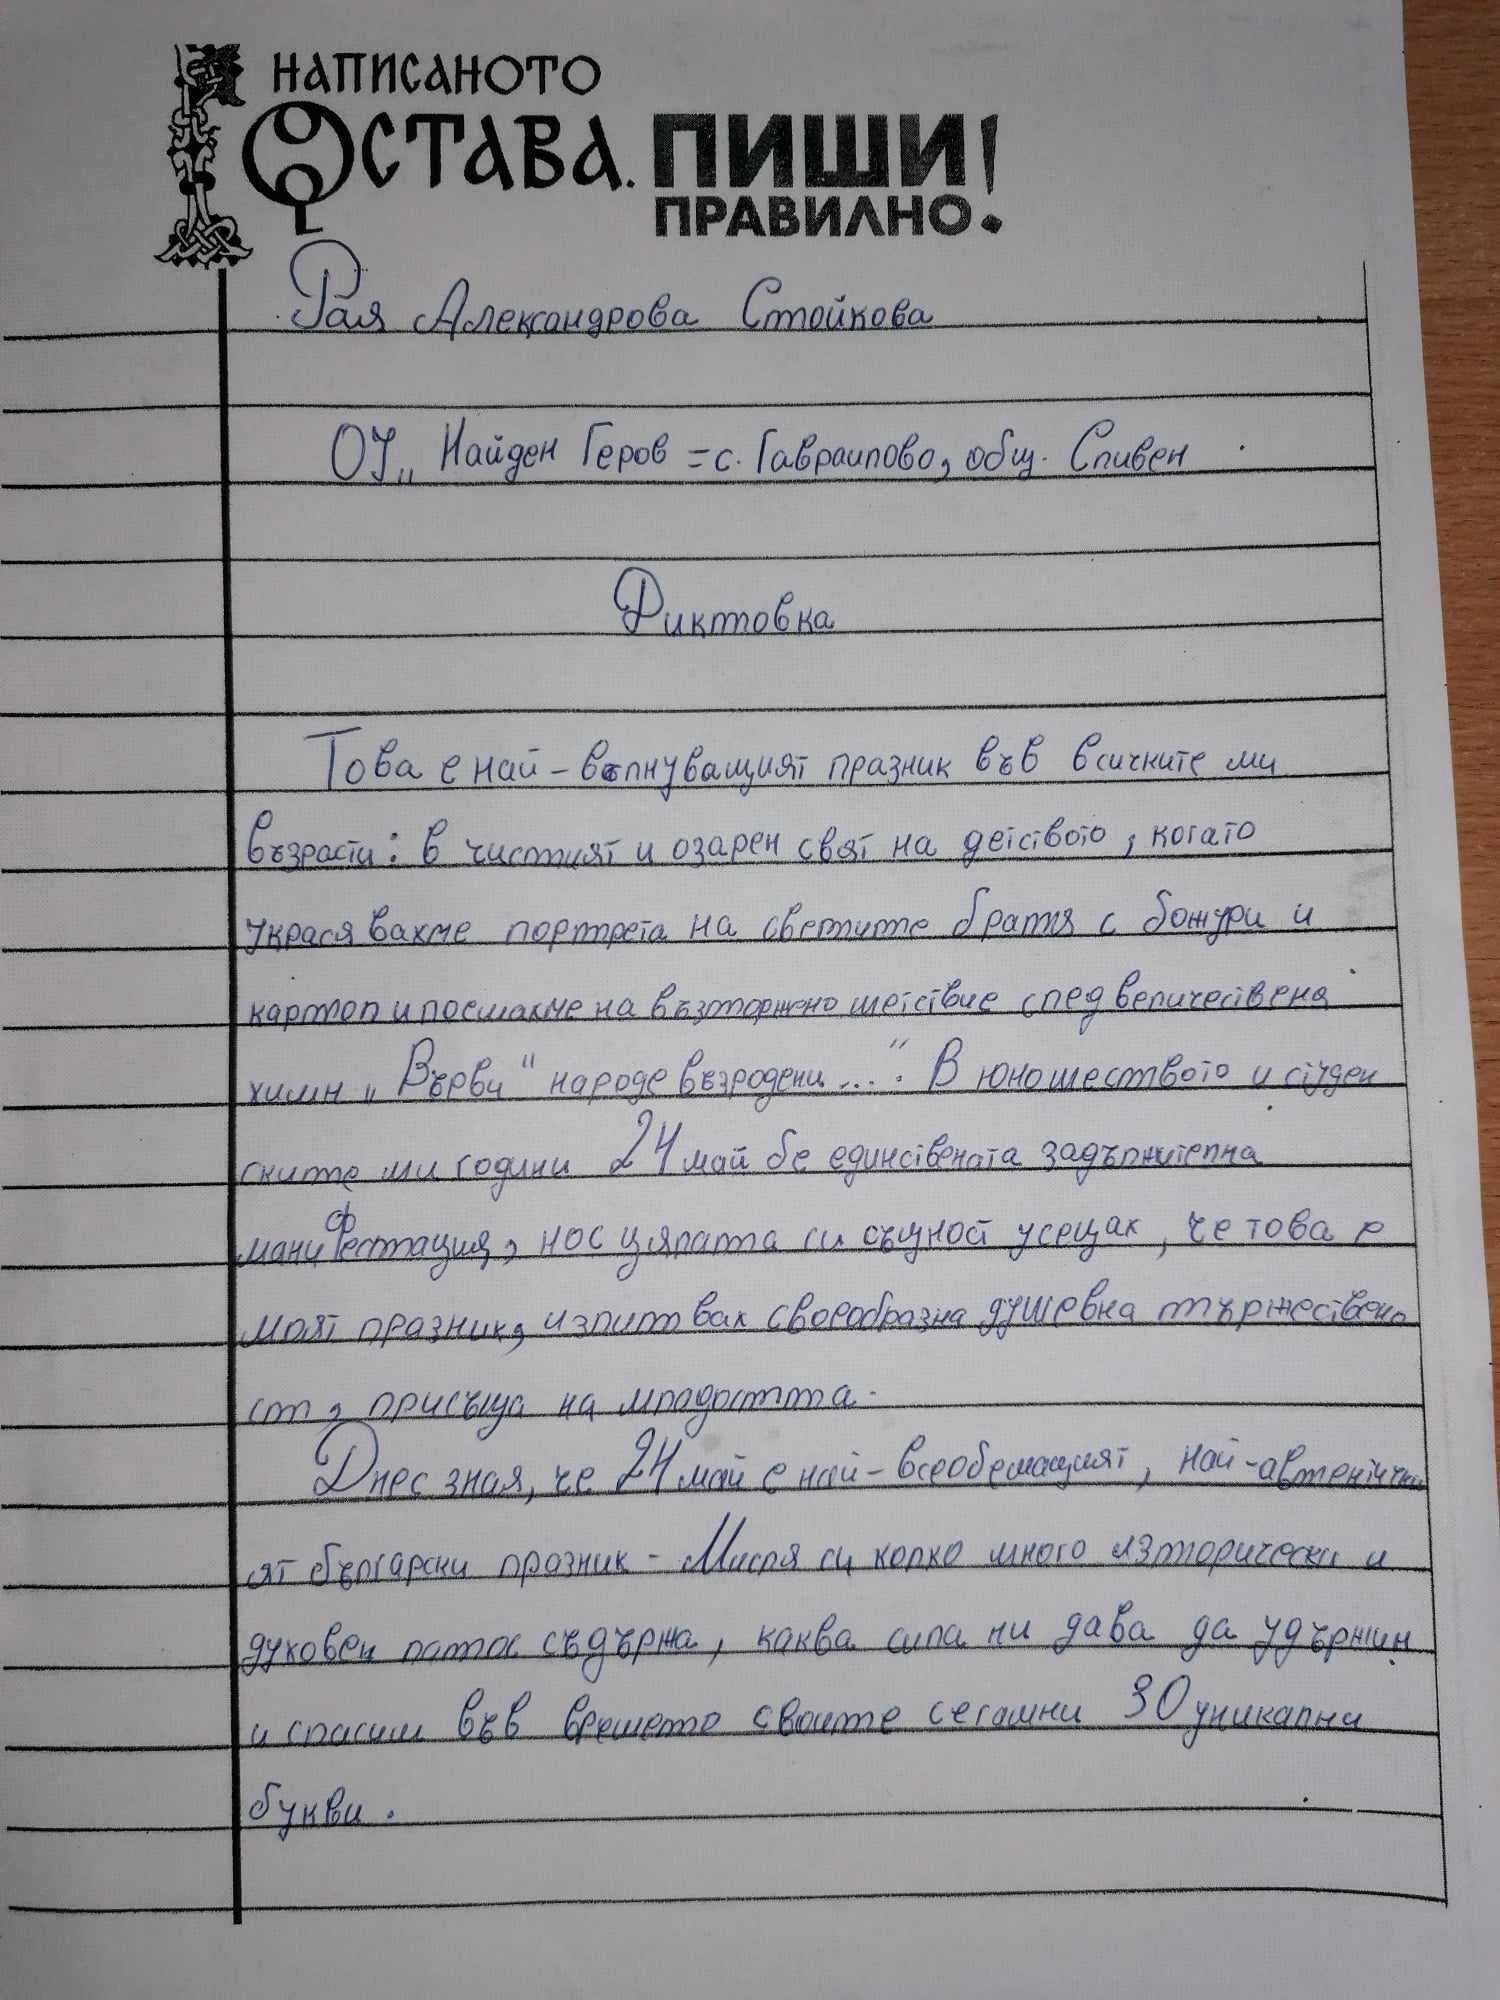 НАПИСАНОТО
ОСТАВА. ПИШИ
ПРАВИЛНО!
Рая Александрова Стойкова
ОУ „Найден Геров" - с. Гавраилово, общ. Сливен
Диктовка
Това е най-вълнуващият празник във всичките ми
възрасти: в чистият и озарен свят на детството, когато
украсявахме портрета на светите братя с божури и
картоп и поемахме на възторжено шетствие след величествена
химн „Върви" народе възродени...". В юношеството и студен
ските ми години 24 май бе единствената задължителна
манифестация, но с цялата си същност усещах, че това е
моят празник, изпитвах своеобразна душевна тържествено
ст, присъща на младостта.
Днес зная, че 24 май е най-всеобемащият, най-автентичния
ят български празник - Мисля си колко много изторически и
духовен патос съдържа, каква сила ни дава да удържим
и спасим във времето своите сегашни 30 уникални
букви.